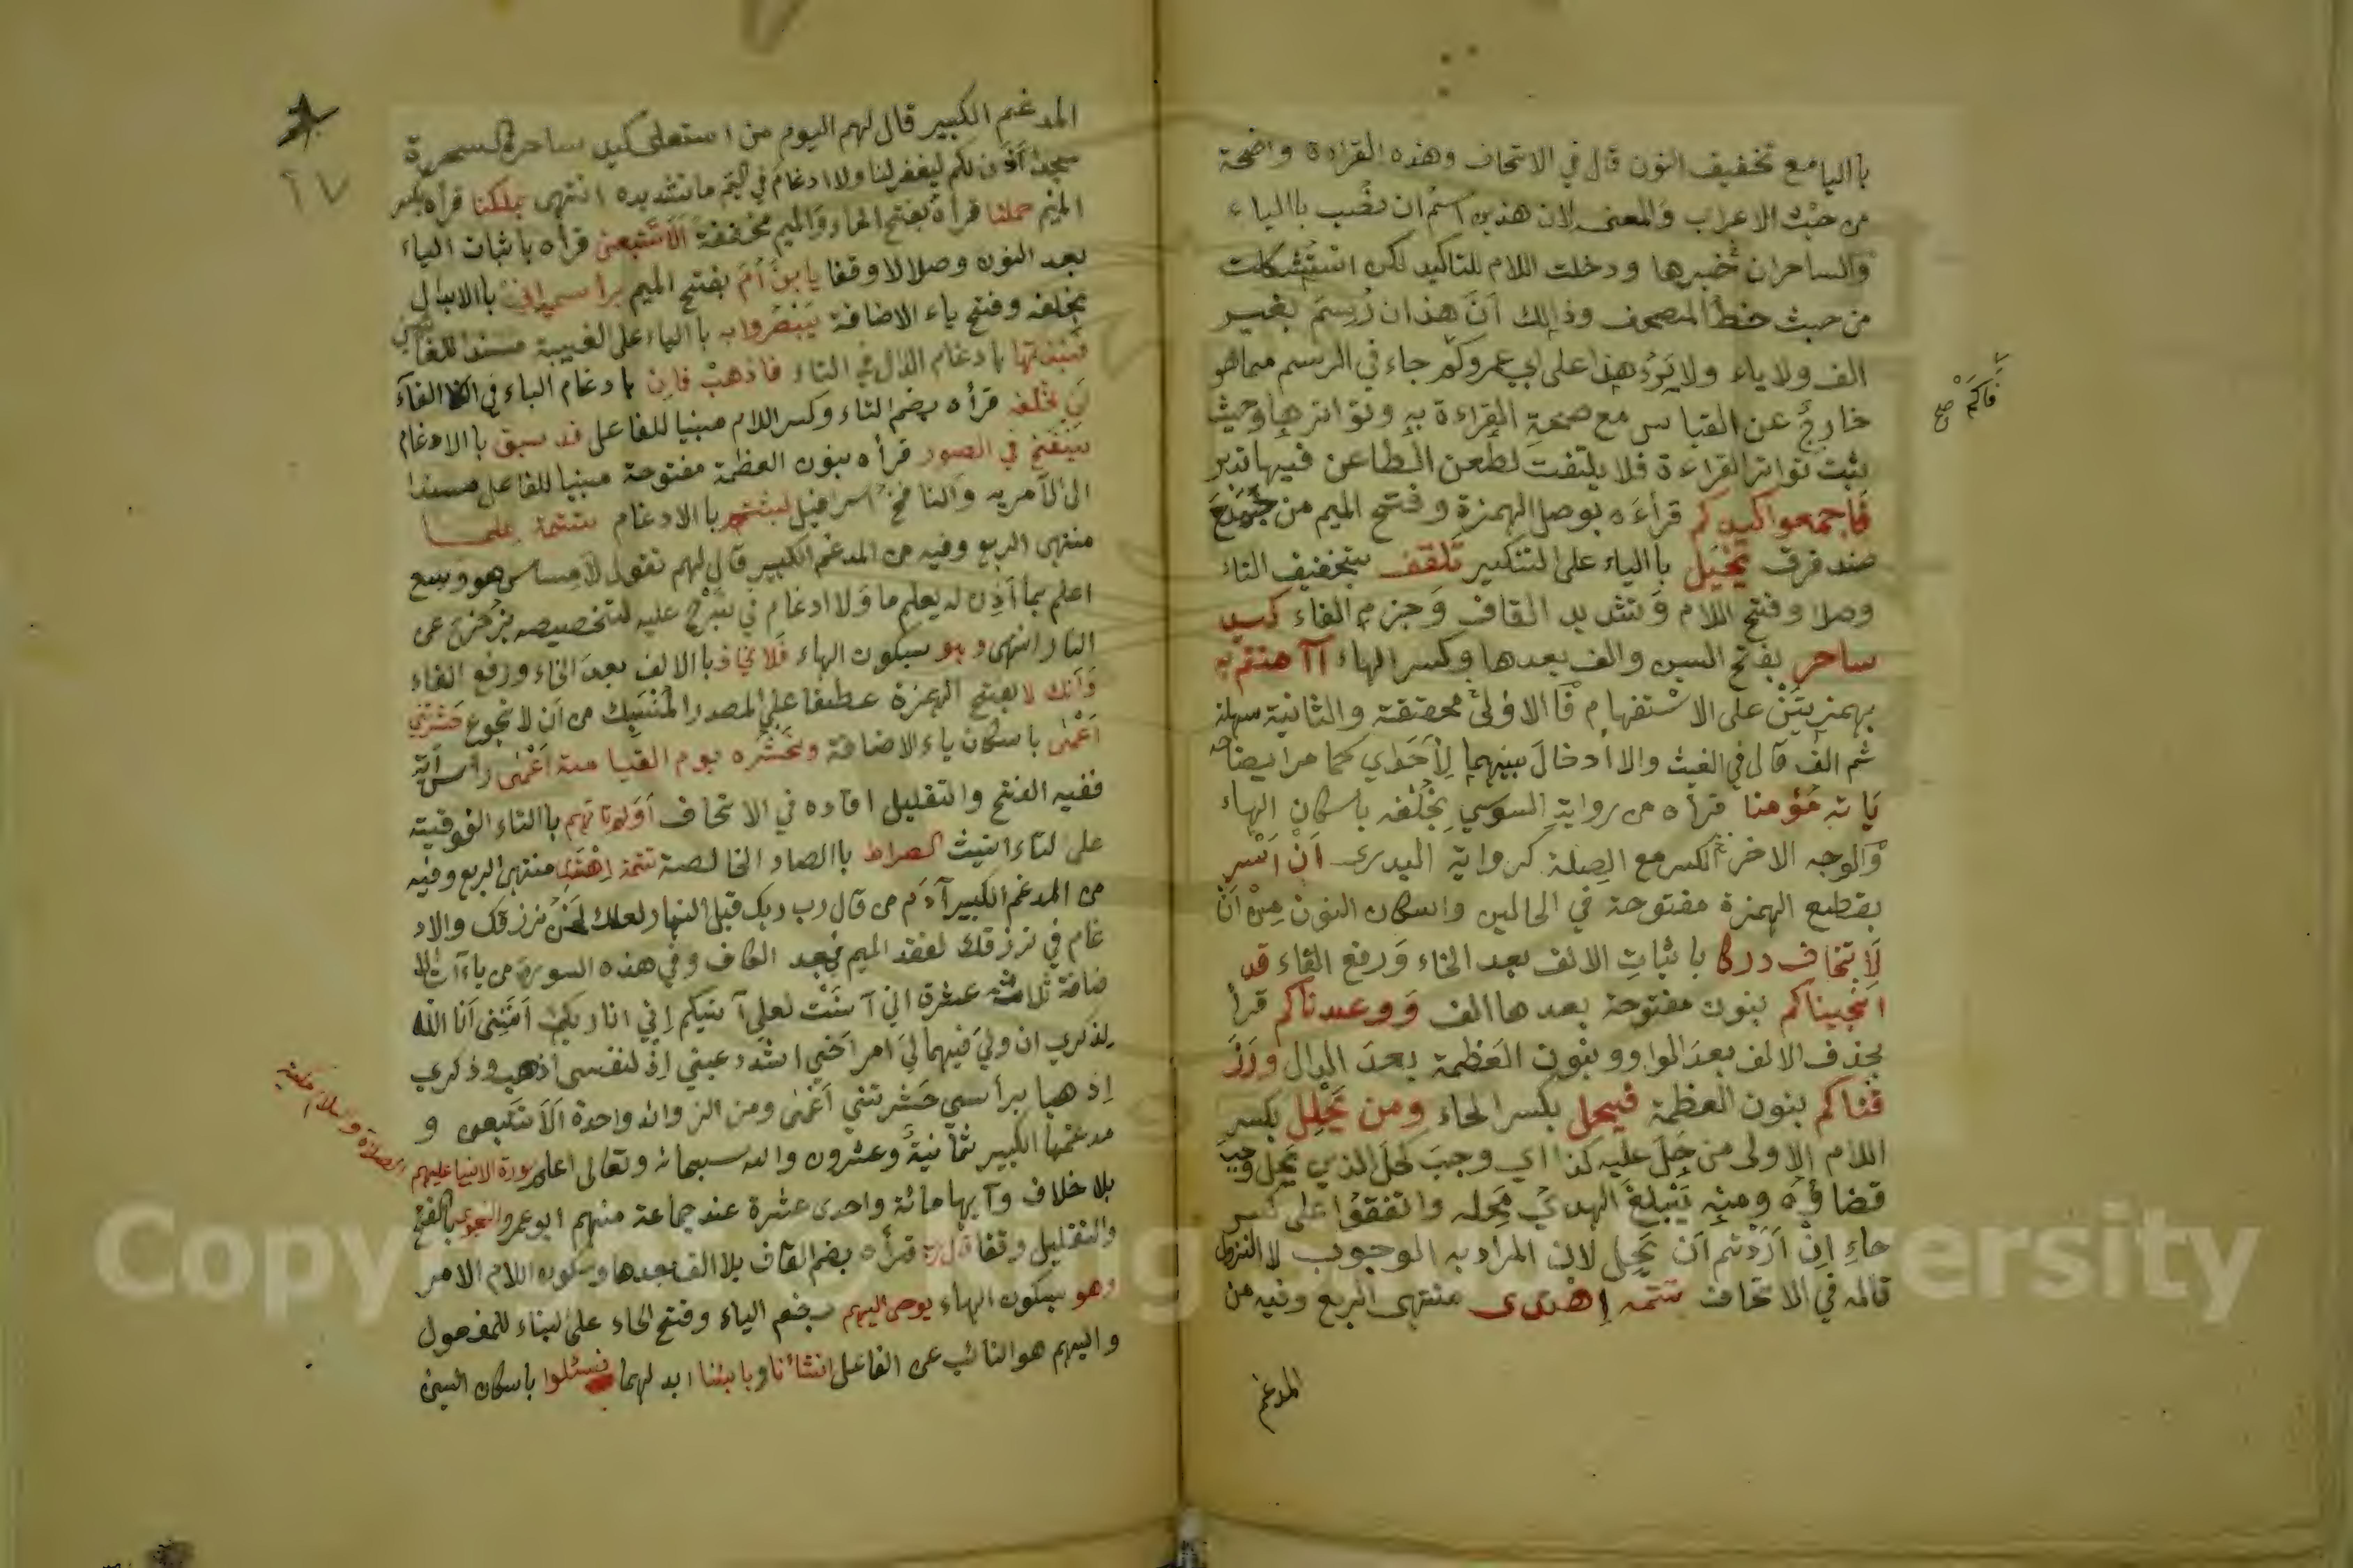 بااليا مع تخفيف النون قال في الاتحاف وهذه القراءة واضحة
من حيث الاعراب والمعنى لان هذين اسم ان نصب باالياء
والساحران خبرها ودخلت اللام للتاكيد لكن استشكلت
من حيث خط المصحف وذالك ان هذان رسم بغير
الف ولا ياء ولا يرد هذا على ابي عمرو كم جاء في الرسم مما هو
خارج عن القياس مع صحة القراءة به وتواترها وحيث
ثبت تواتر القراءة فلا يلتفت لطعن الطاعن فيها تدبر
فاجمعوا كيدكم قراءه بوصل الهمزة وفتح الميم من جمع
ضد فرق تخيل باالياء على التذكير تلقف بتخفيف التاء
وصلا وفتح اللام وتشديد القاف وجزم الفاء كيد
ساحر بفتح السين والف بعدها وكسر الهاء أآمنتم به
بهمزيتن على الاستفهام فاالاولى محققة والثانية سهلة
ثم الف قال في الغيث والا ادخال بينهما لاحد اي كما مر ايضا
ياته مؤمنا قرأه من رواية السوسي بخلفه باسكان الهاء
والوجه الاخر الكسر مع الصلة كرواية الدوري ان اسر
بقطع الهمزة مفتوحة في الحالين واسكان النون من ان
لا تخاف دركا باثبات الالف بعد الخاء ورفع الفاء قد
انجيناكم بنون مفتوحة بعدها الف ووعدناكم قرأ
بحذف الالف بعد الواو وبنون العظمة بعد الدال ورز
قناكم بنون العظمة فيحل بكسر الحاء ومن يحلل بكسر
اللام الاولى من حل عليه كذا اي وجب كحل الدين يحل وجب
قضاؤه ومنه يبلغ الهدي محله واتفقوا على كسر
حاء ان اردتم ان يحل لان المراد به الوجوب لا النزول
قاله في الاتحاف تتمه اهتدى منتهى الربع وفيه من
المدغم
المدغم الكبير قال لهم اليوم من استعلى كيد ساحر السحرة
سجدا آذن لكم ليغفر لنا ولا ادغام في اليم ما لتشديده انتهى بملكنا قرأه بكسر
الميم حملنا قرأه بفتح الحاء والميم مخففة الا تتبعن قرأه باثبات الياء
بعد النون وصلا لا وقفا يا بن أم بفتح الميم برأسي اني باالابدال
بخلفه وفتح ياء الاضافة يبصروا به باالياء على الغيبة مسندا للغائب
فنبذتها بادغام الذال في التاء فاذهب فان بادغام الباء في الفاء
لن تخلفه قرأه بضم التاء وكسر اللام مبنيا للفاعل قد سبق باالادغام
ننفخ في الصور قرأه بنون العظمة مفتوحة مبنيا للفاعل مسندا
الى الآمر به والنافخ اسرافيل لبثتم باالادغام تتمة علما
منتهى الربع وفيه من المدغم الكبير قال لهم تقول لا مساس هو وسع
اعلم بما أذن له يعلم ما ولا ادغام في نبرح عليه لتخصيصه بزحزح عن
النار انتهى وهو بسكون الهاء فلا يخاف باالالف بعد الخاء ورفع الفاء
وأنك لا بفتح الهمزة عطفا على المصدر المنسبك من أن لا تجوع حشرتني
أعمى باسكان ياء الاضافة ونحشره يوم القيامة أعمى رأس آية
ففيه الفتح والتقليل افاده في الاتحاف أولم تاتهم باالتاء الفوقية
على لتاءانيث الصراط باالصاد الخالصة تتمة اهتدى منتهى الربع وفيه
من المدغم الكبير آدم من قال رب ربك قبل النهار لعلك نحن نرزقك والاد
غام في نرزقك لفقد الميم بعد الكاف وفي هذه السورة من ياءات الا
ضافة ثلاثة عشرة اني آنست لعلي آتيكم إني انا ربك انني انا الله
لذكري ان ولي فيها لي امر اخي اشدد عيني اذ لنفسي اذهب وذكري
اذهبا برأسي حشرتني أعمى ومن الزوائد واحدة الا تتبعن و
مدغمها الكبير ثمانية وعشرون والله سبحانه وتعالى اعلم سورة الانبيا عليهم
الصلاة والسلام مكية
بلا خلاف وآيها مائة واحدى عشرة عند جماعة منهم ابو عمرو النجوى باالفتح
والتقليل وقفا قل ربي قرأه بضم القاف بلا الف بعدها وسكون اللام الامر
وهو بسكون الهاء يوحى اليهم بضم الياء وفتح الحاء على لبناء للمفعول
واليهم هو النائب عن الفاعل انشأنا وبأسنا ابدلهما فسئلوا باسكان السين
Copy King ersity